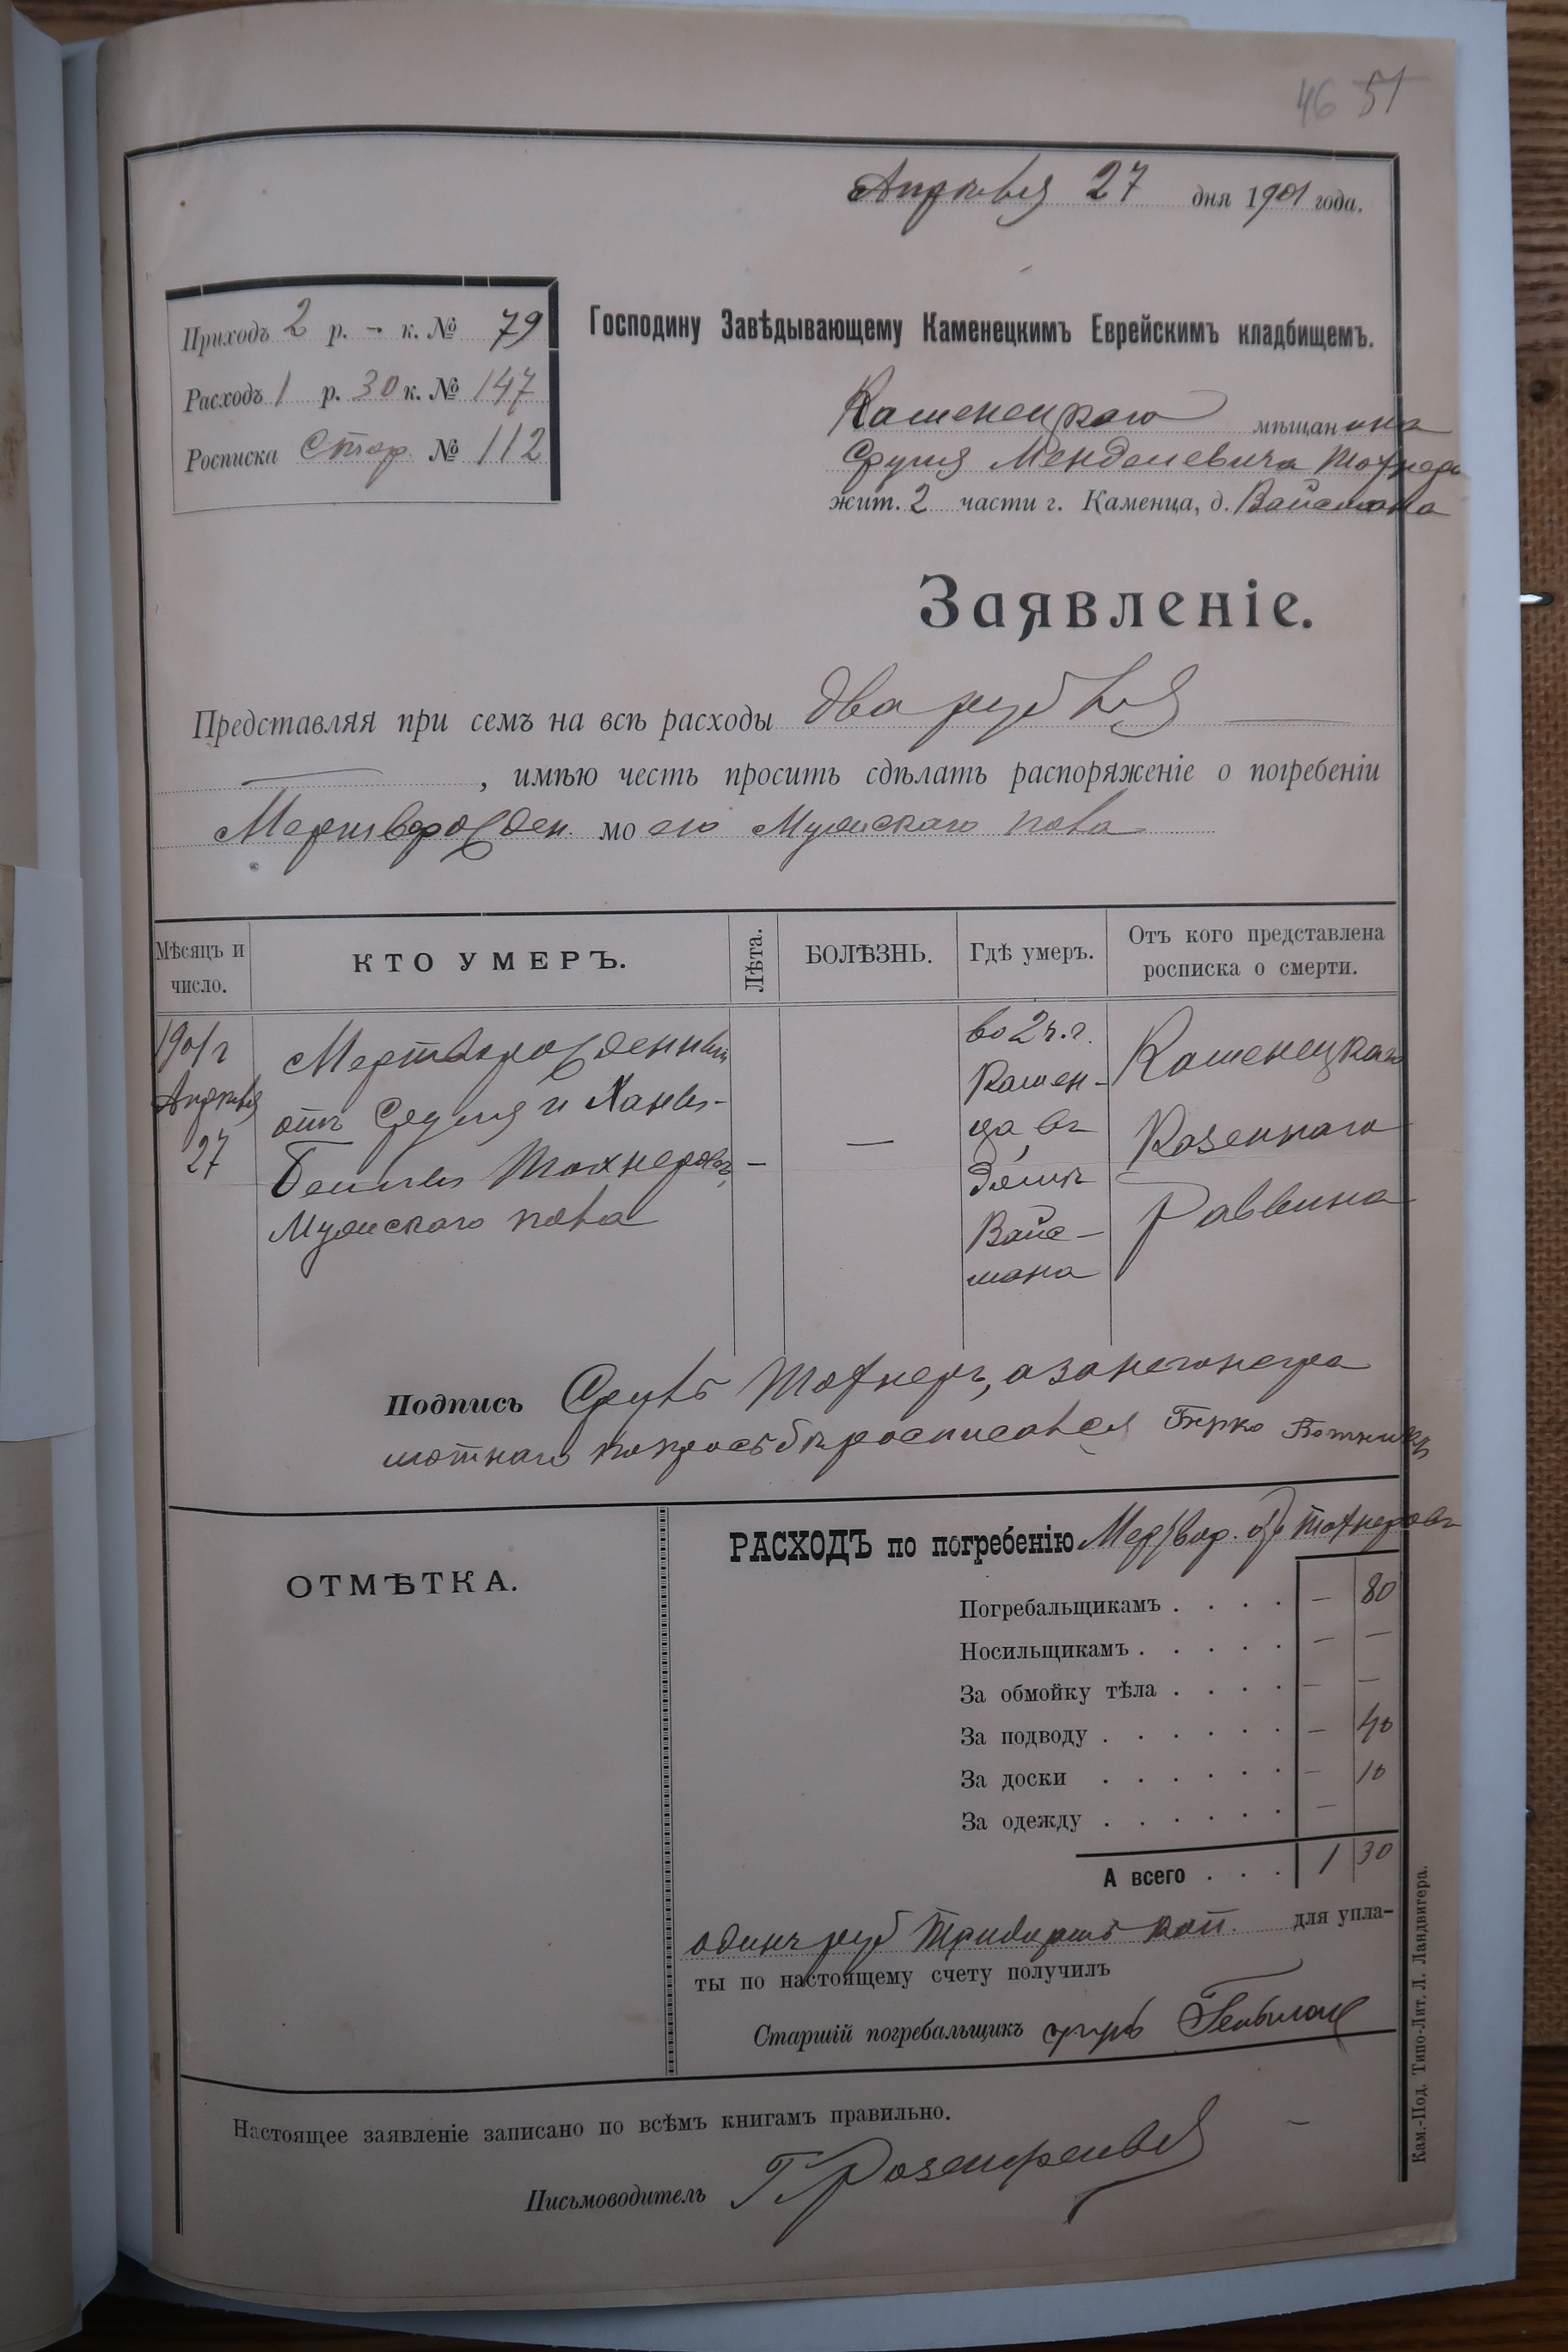 46 51
Апрѣля 27 дня 1901 года.
Приходъ 2 р. - к. № 79
Расходъ 1 р. 30 к. № 147
Росписка Стар. № 112
Господину Завѣдывающему Каменецкимъ Еврейскимъ кладбищемъ.
Каменецкаго мѣщанина
Сруля Менделевича Тохнера
жит. 2 части г. Каменца, д. Вайсмана
Заявленіе.
Представляя при семъ на всѣ расходы два рубля
, имѣю честь просить сдѣлать распоряженіе о погребеніи
Мертворожден. моего Мужскаго пола
Мѣсяцъ и число.
КТО УМЕРЪ.
Лѣта.
БОЛѢЗНЬ.
Гдѣ умеръ.
Отъ кого представлена росписка о смерти.
1901 г
Апрѣля
27
Мертворожденный
отъ Сруля и Ханы-
Бейлы Тохнеровъ,
Мужскаго пола
—
—
во 2 ч. г.
Камен-
ца, въ
домѣ
Вайс-
мана
Каменецкаго
Казеннаго
Раввина
Подпись Сруль Тохнеръ, а за него негра
мотнаго по просьбѣ росписался Берко
ОТМѢТКА.
РАСХОДЪ по погребенію Тохнеровъ
Погребальщикамъ . . . . — 80
Носильщикамъ . . . . . — —
За обмойку тѣла . . . . — —
За подводу . . . . . . — 40
За доски . . . . . . — 10
За одежду . . . . . . —
А всего . . . 1 30
одинъ руб тридцать коп. для упла-
ты по настоящему счету получилъ
Старшій погребальщикъ
Настоящее заявленіе записано по всѣмъ книгамъ правильно.
Письмоводитель
Кам.-Под. Типо-Лит. Л. Ландвигера.